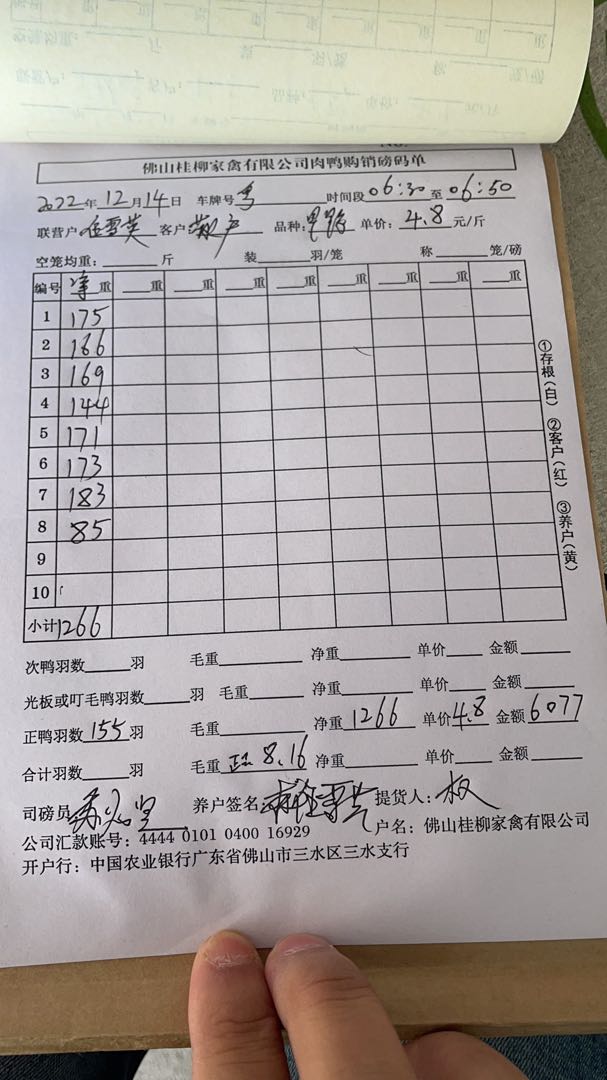 佛山桂柳家禽有限公司肉鸭购销磅码单
2022年12月14日 车牌号 时间段06:30至06:50
联营户 客户 品种: 单价: 4.8 元/斤
空笼均重: 斤 装 羽/笼 称 笼/磅
编号 净重 重 重 重 重 重 重 重 重
1 175
2 166
3 169
4 144
5 171
6 173
7 183
8 85
9
10
小计 1266
①存根(白) ②客户(红) ③养户(黄)
次鸭羽数 羽 毛重 净重 单价 金额
光板或叮毛鸭羽数 羽 毛重 净重 单价 金额
正鸭羽数 155 羽 毛重 净重 1266 单价 4.8 金额 6077
合计羽数 羽 毛重 8.16 净重 单价 金额
司磅员 养户签名: 提货人:
公司汇款账号: 4444 0101 0400 16929 户名: 佛山桂柳家禽有限公司
开户行: 中国农业银行广东省佛山市三水区三水支行